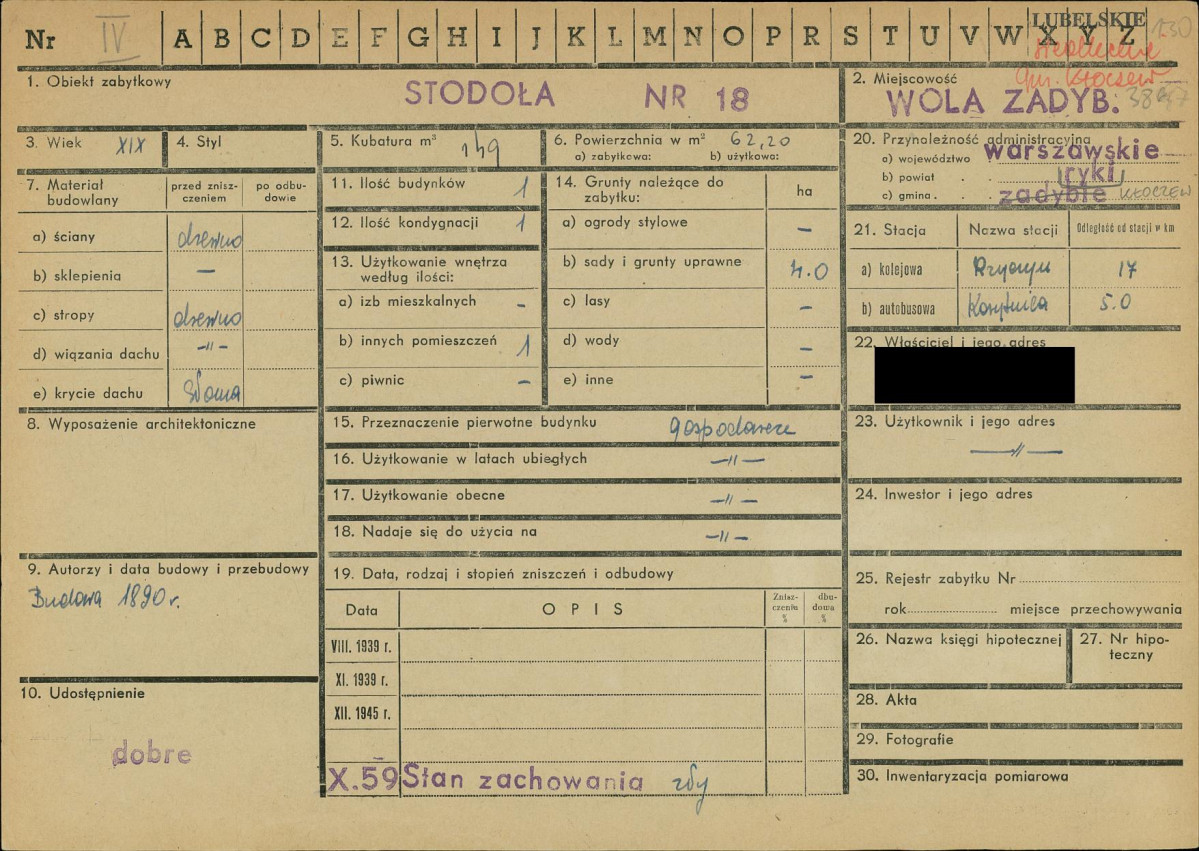 Nr IV A B C D E F G H I J K L M N O P R S T U V W X Y Z
LUBELSKIE
130
siedleckie
gm. Kłoczew
1. Obiekt zabytkowy
STODOŁA NR 18
2. Miejscowość
WOLA ZADYB.
3. Wiek XIX
4. Styl
5. Kubatura m³ 149
6. Powierzchnia w m² 62,20
a) zabytkowa: b) użytkowa:
20. Przynależność administracyjna
a) województwo warszawskie
b) powiat . . ryki
c) gmina . . zadybie KŁOCZEW
7. Materiał budowlany
przed zniszczeniem
po odbudowie
a) ściany drewno
b) sklepienia —
c) stropy drewno
d) wiązania dachu —„—
e) krycie dachu słoma
11. Ilość budynków 1
12. Ilość kondygnacji 1
13. Użytkowanie wnętrza
według ilości:
a) izb mieszkalnych -
b) innych pomieszczeń 1
c) piwnic -
14. Grunty należące do
zabytku: ha
a) ogrody stylowe -
b) sady i grunty uprawne 4.0
c) lasy -
d) wody -
e) inne -
21. Stacja Nazwa stacji Odległość od stacji w km
a) kolejowa 17
b) autobusowa 5.0
22. Właściciel i jego adres
8. Wyposażenie architektoniczne
15. Przeznaczenie pierwotne budynku gospodarcze
16. Użytkowanie w latach ubiegłych —„—
17. Użytkowanie obecne —„—
18. Nadaje się do użycia na —„—
23. Użytkownik i jego adres
—„—
24. Inwestor i jego adres
9. Autorzy i data budowy i przebudowy
Budowa 1890 r.
19. Data, rodzaj i stopień zniszczeń i odbudowy
Data OPIS Zniszczeniu % dbudowa %
VIII. 1939 r.
XI. 1939 r.
XII. 1945 r.
X.59 Stan zachowania zły
25. Rejestr zabytku Nr
rok miejsce przechowywania
26. Nazwa księgi hipotecznej
27. Nr hipoteczny
10. Udostępnienie
dobre
28. Akta
29. Fotografie
30. Inwentaryzacja pomiarowa